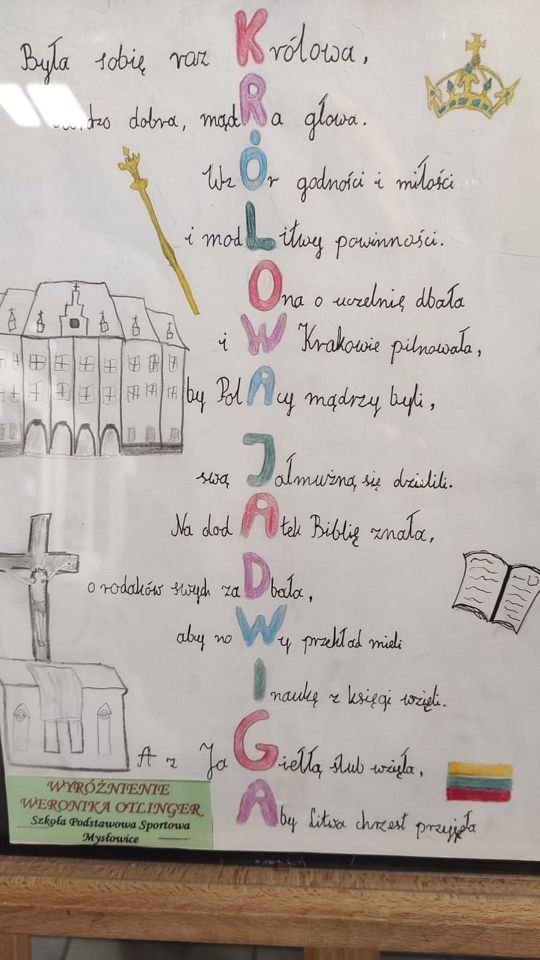 Była sobie raz Królowa,
bardzo dobra, mądRa głowa.
WzÓr godności i miłości
i modLitwy powinności.
Ona o uczelnię dbała
i W Krakowie pilnowała,
by PolAcy mądrzy byli,
swą Jałmużną się dzielili.
Na dodAtek Biblię znała,
o rodaków swych zaDbała,
aby noWy przekład mieli
I naukę z księgi wzięli.
A z JaGiełłą ślub wzięła,
Aby Litwa chrzest przyjęła
WYRÓŻNIENIE
WERONIKA OTLINGER
Szkoła Podstawowa Sportowa
Mysłowice